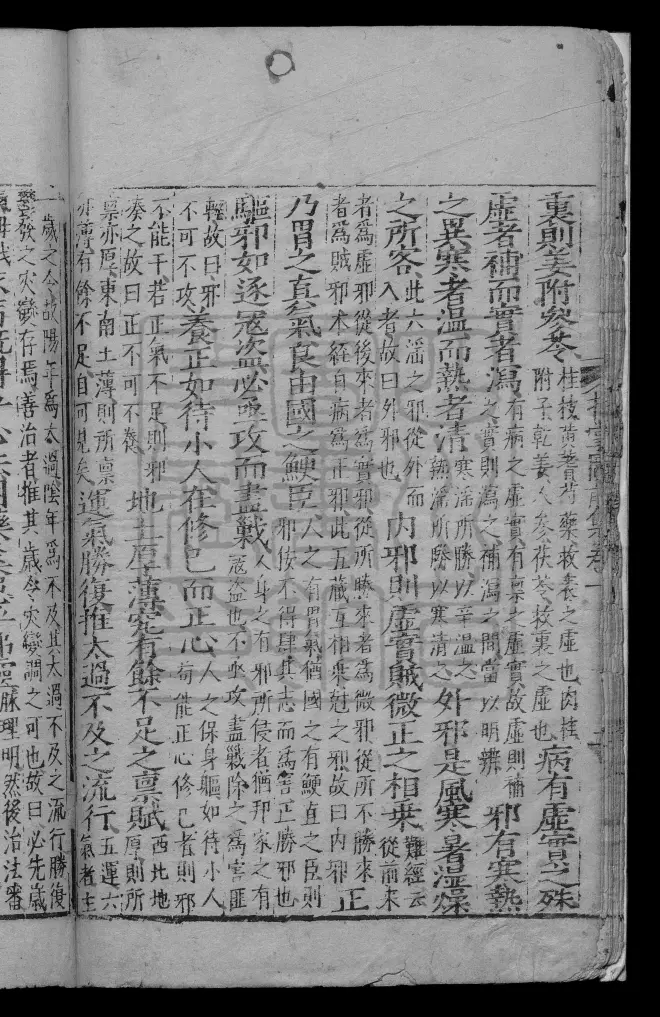 裏則姜附參苓桂枝黃耆芍藥救表之虛也肉桂附子乾姜人參茯苓救裏之虛也病有虛實之殊
虛者補而實者瀉有病之虛實有禀之虛實故虛則補之實則瀉之補瀉之間當以明辨邪有寒熱
之異寒者温而熱者清寒淫所勝以辛温之熱淫所勝以寒清之外邪是風寒暑湿燥
之所客此六淫之邪從外而入者故曰外邪也內邪則虛實賊微正之相乗難經云從前來
者為虛邪從後來者為實邪從所勝來者為微邪從所不勝來
者為賊邪本経自病為正邪此五蔵互相乗尅之邪故曰內邪正
乃胃之真氣良由國之鯁臣人之有胃氣猶國之有鯁直之臣則邪佞不得肆其志而為害正勝邪也
驅邪如逐寇盗必亟攻而盡戮人身之有邪所侵者猶邦家之有寇盗也不亟攻盡戮除之為害匪
輕故曰邪不可不攻養正如待小人在修己而正心人之保身軀如待小人苟能正心修己者則邪
不能干若正氣不足則邪湊之故曰正不可不養地土厚薄究有餘不足之禀賦西北地厚則所
禀亦厚東南土薄則所禀亦薄有餘不足自可見矣運氣勝復推太過不及之流行五運六氣者主
歲之令故陽年為太過陰年為不及其太過不及之流行勝復
變發之灾變存焉善治者推其歲令灾變調之可也故曰必先歲
脉理明然後治法審